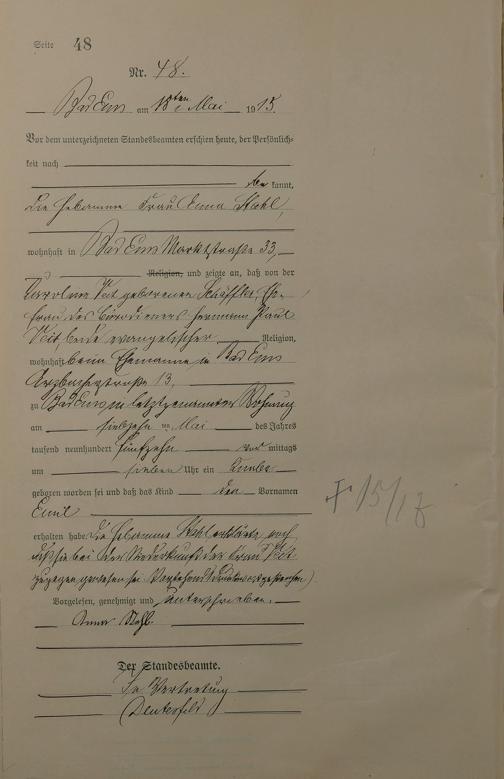 Seite 48
Nr. 48.
Bad Ems am 18ten Mai 1915.
Vor dem unterzeichneten Standesbeamten erschien heute, der Persönlich-
keit nach
be kannt,
die Hebamme Frau Anna Stahl,
wohnhaft in Bad Ems Marktstraße 33,
Religion, und zeigte an, daß von der
Karoline Veit geborenen Ehe-
frau des Bürodieners Hermann Paul
Veit beide evangelischer Religion,
wohnhaft beim Ehemanne in Bad Ems
Arzbacherstraße 13,
zu Bad Ems in letztgenannter Wohnung
am siebzehn ten Mai des Jahres
tausend neunhundert fünfzehn mittags
um sieben Uhr ein Knabe
geboren worden sei und daß das Kind den Vornamen
Emil
erhalten habe. Die Hebamme Stahl erklärte noch
daß sie bei der Niederkunft der Frau Veit
zugegen gewesen sei
Vorgelesen, genehmigt und unterschrieben.
Anna Stahl.
Der Standesbeamte.
In Vertretung